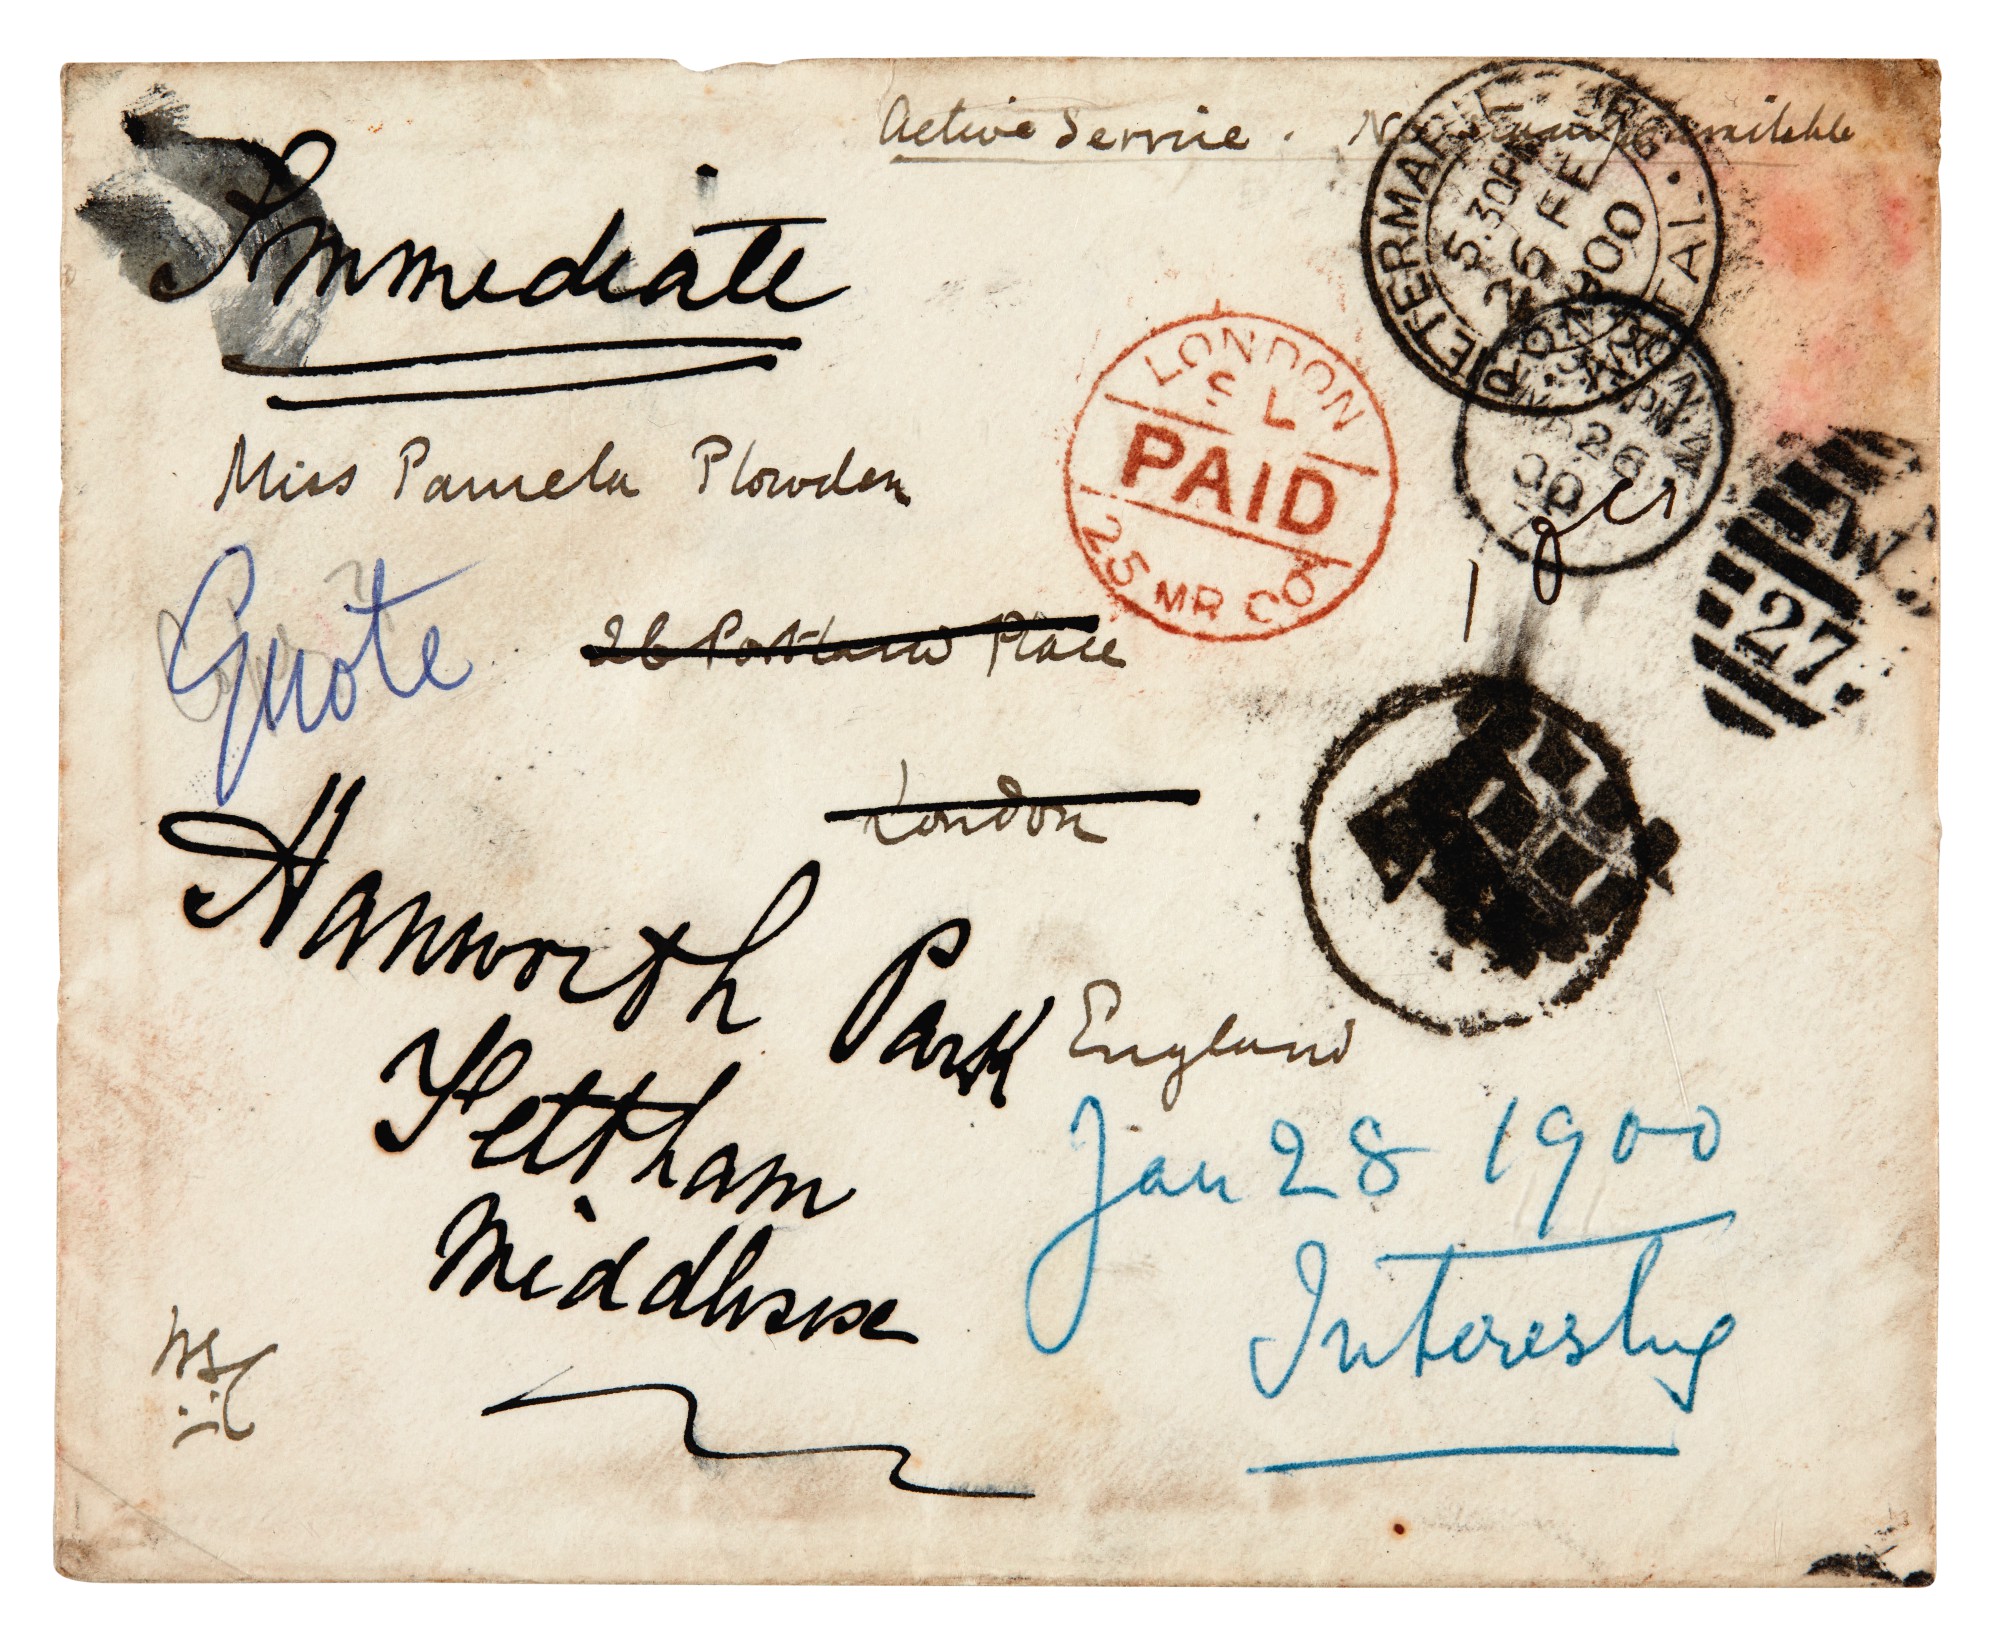 Active Service. No stamps available
Immediate
Miss Pamela Plowden
Quote
26 Portland Place
London
Hanworth Park
England
Feltham
Middlesex
Jan 28 1900
Interesting
WSC
PIETERMARITZBURG • NATAL
5.30PM
26 FE
1900
LONDON
S L
PAID
25 MR 00
LONDON. W
MR 26
00
W
27